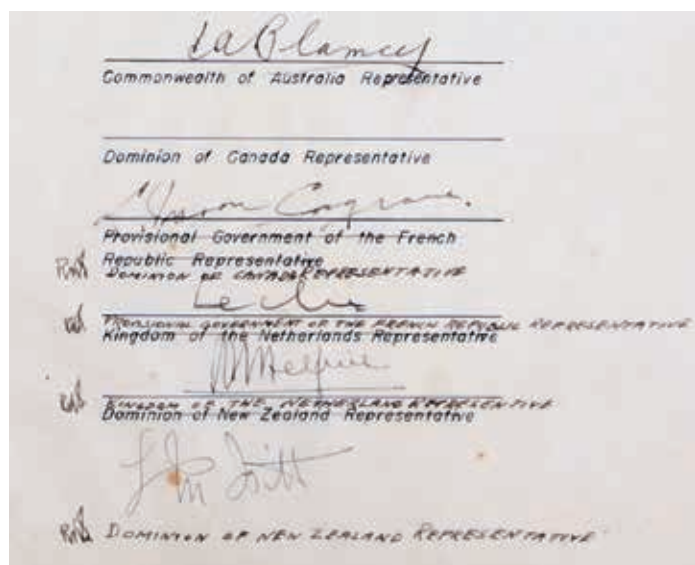 T A Blamey
Commonwealth of Australia Representative
Dominion of Canada Representative
Moore Cosgrave.
Provisional Government of the French
Republic Representative
DOMINION OF CANADA REPRESENTATIVE
Leclerc
PROVISIONAL GOVERNMENT OF THE FRENCH REPUBLIC REPRESENTATIVE
Kingdom of the Netherlands Representative
Helfrich
KINGDOM OF THE NETHERLAND REPRESENTIVE
Dominion of New Zealand Representative
L M Isitt
DOMINION OF NEW ZEALAND REPRESENTATIVE